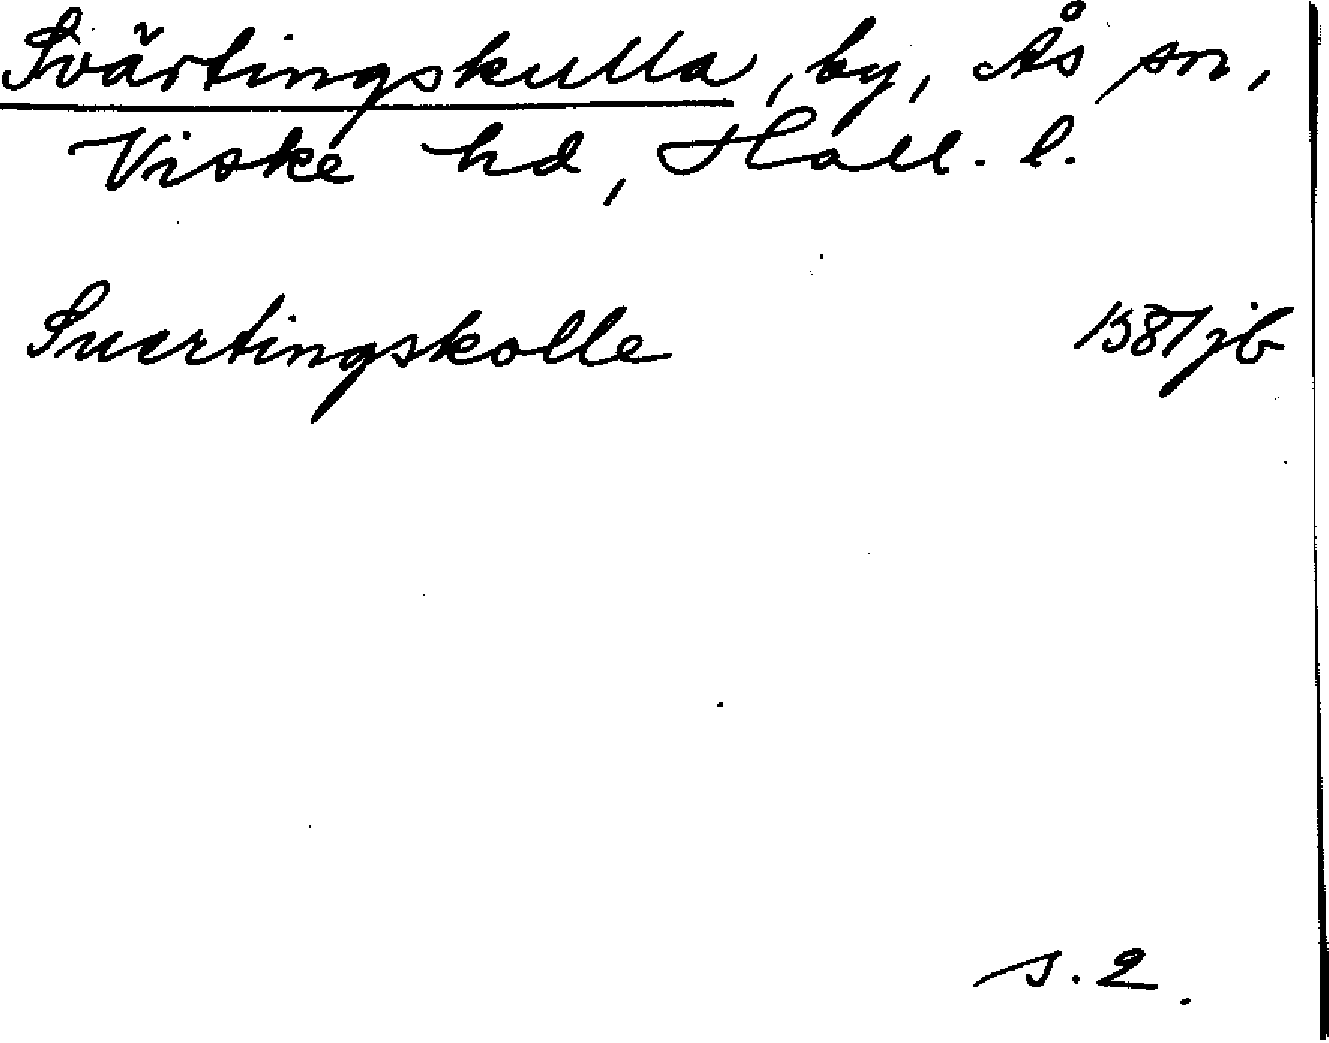 Svärtingskulla, by, Ås sn,
Viske hd, Hall. l.
Suertingskolle 1587 jb
s. 2.